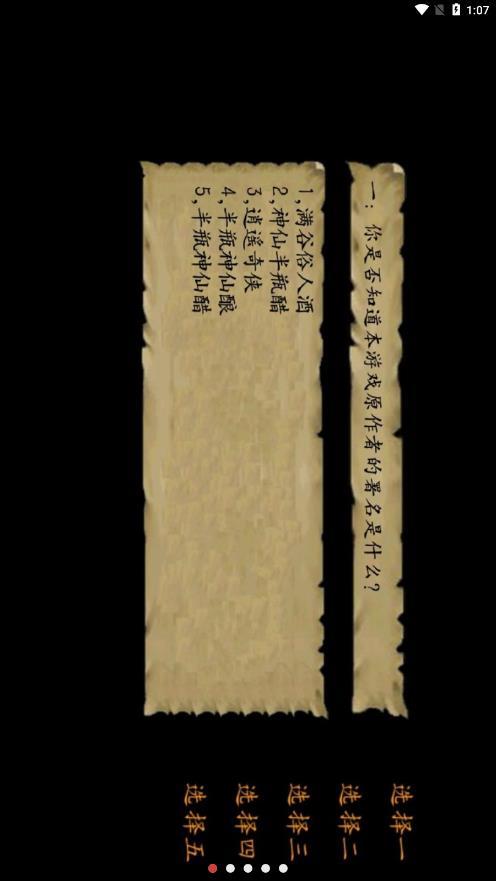 1:07
一：你是否知道本游戏原作者的署名是什么？
1,满谷俗人酒
2,神仙半瓶醋
3,逍遥奇侠
4,半瓶神仙酿
5,半瓶神仙醋
选择一
选择二
选择三
选择四
选择五